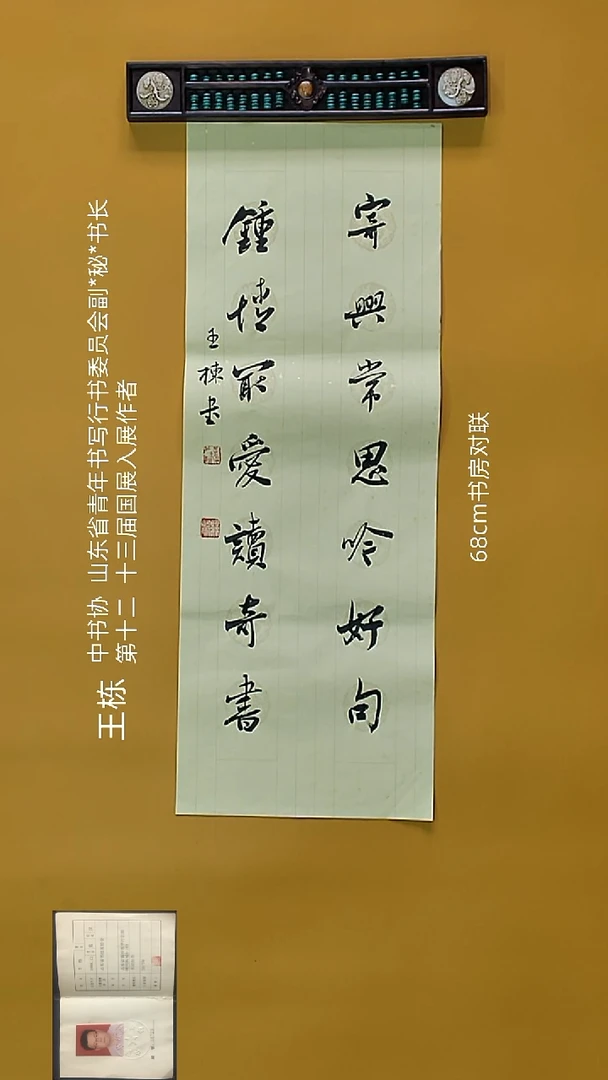 寄興常思吟好句
鍾情最愛讀奇書
王棟書
王栋
中书协 山东省青年书写行书委员会副*秘*书长
第十二 十三届国展入展作者
68cm书房对联